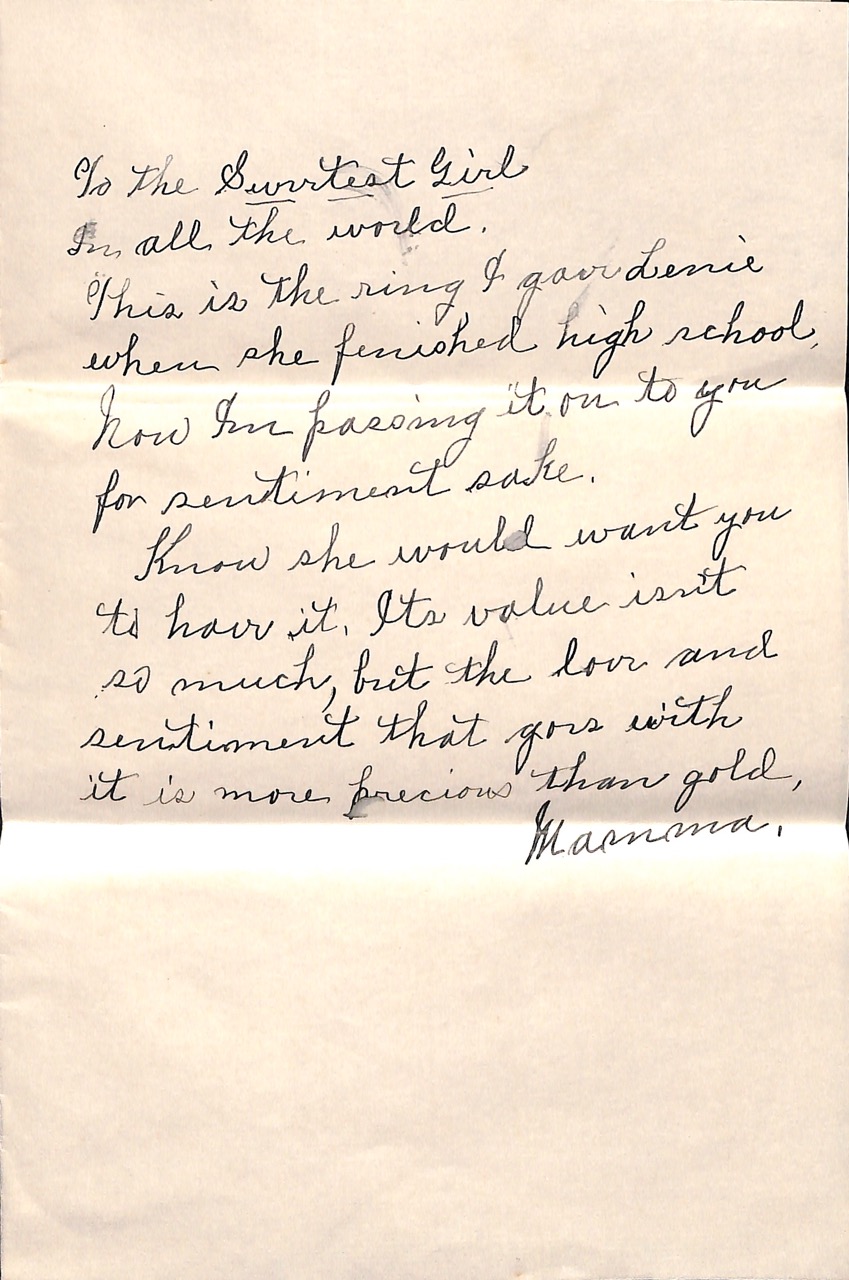 To the Sweetest Girl
In all the world.
This is the ring I gave Lenie
when she fenished high school,
Now Im passing it on to you
for sentiment sake.
Know she would want you
to have it. Its value isn't
so much, but the love and
sentiment that goes with
it is more precious than gold,
Mamma.